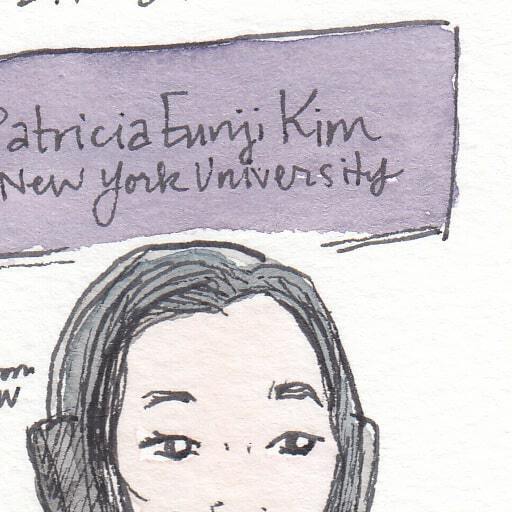 Patricia Eunji Kim
New York University